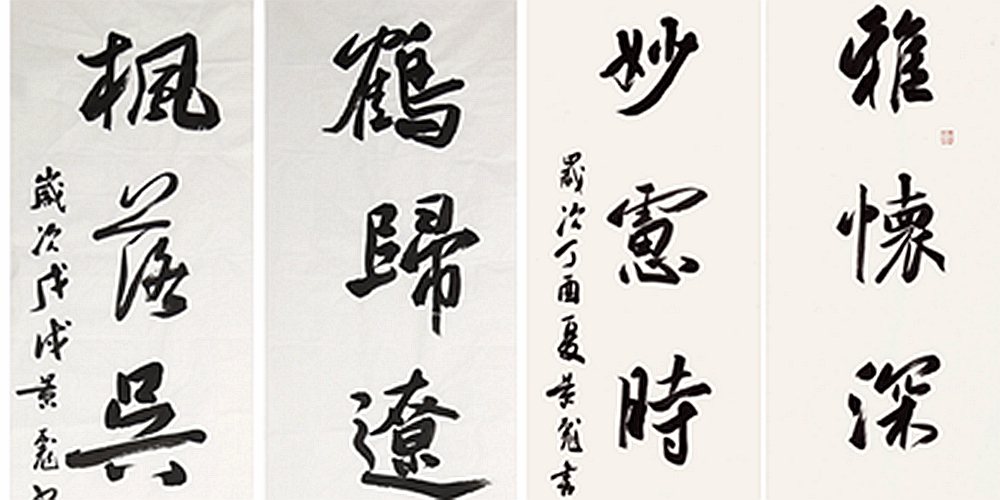 雅懷深
妙慮時
歲次丁酉夏黃彪書
鶴歸遼
楓落吳
歲次戊戌黃彪